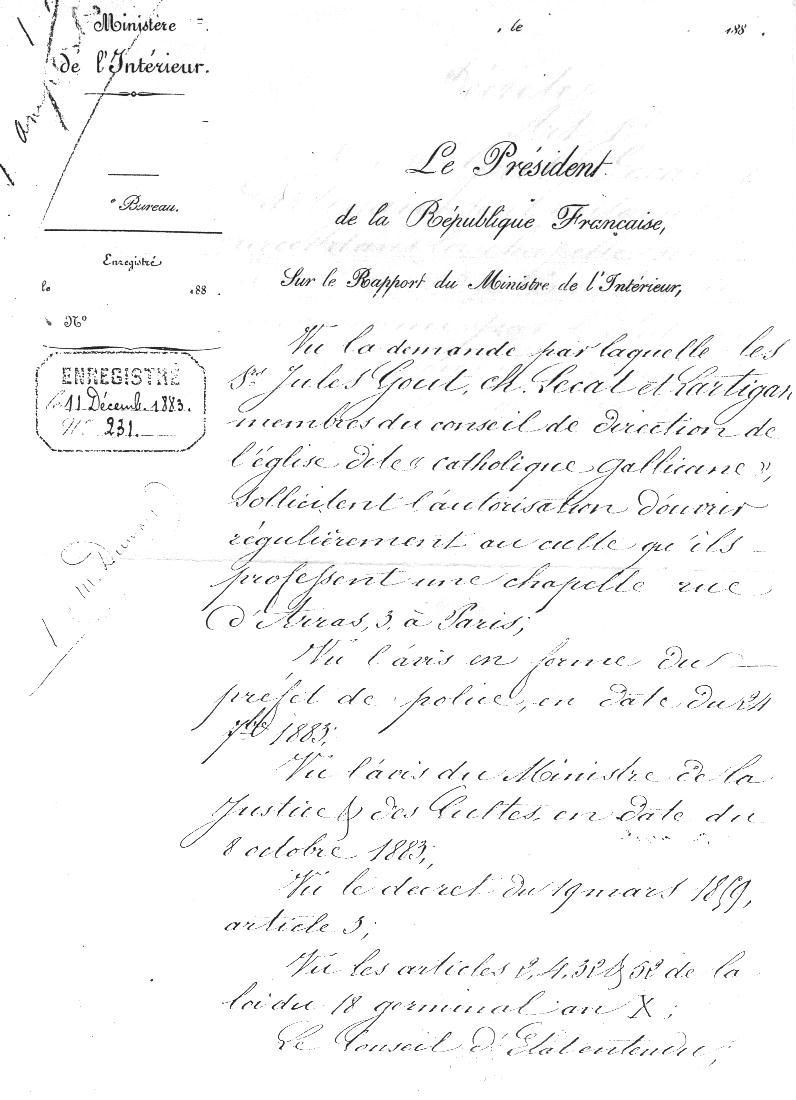 Ministère
de l'Intérieur.
e Bureau.
Enregistré
le 188 .
No
ENREGISTRÉ
le 11 Décemb. 1883.
No 231.
, le 188 .
Le Président
de la République Française,
Sur le Rapport du Ministre de l'Intérieur,
Vu la demande par laquelle les
Srs Jules Gout, ch. Lecat et Lartigau
membres du conseil de direction de
l'église dite « catholique gallicane »,
sollicitent l'autorisation d'ouvrir
régulièrement au culte qu'ils
professent une chapelle rue
d'Arras, 3, à Paris;
Vu l'avis en forme du
préfet de police, en date du 24
7bre 1883;
Vu l'avis du Ministre de la
Justice & des Cultes en date du
8 octobre 1883;
Vu le décret du 19 mars 1859,
article 3;
Vu les articles 2, 4, 32 & 52 de la
loi du 18 germinal an X;
Le Conseil d'Etat entendu;